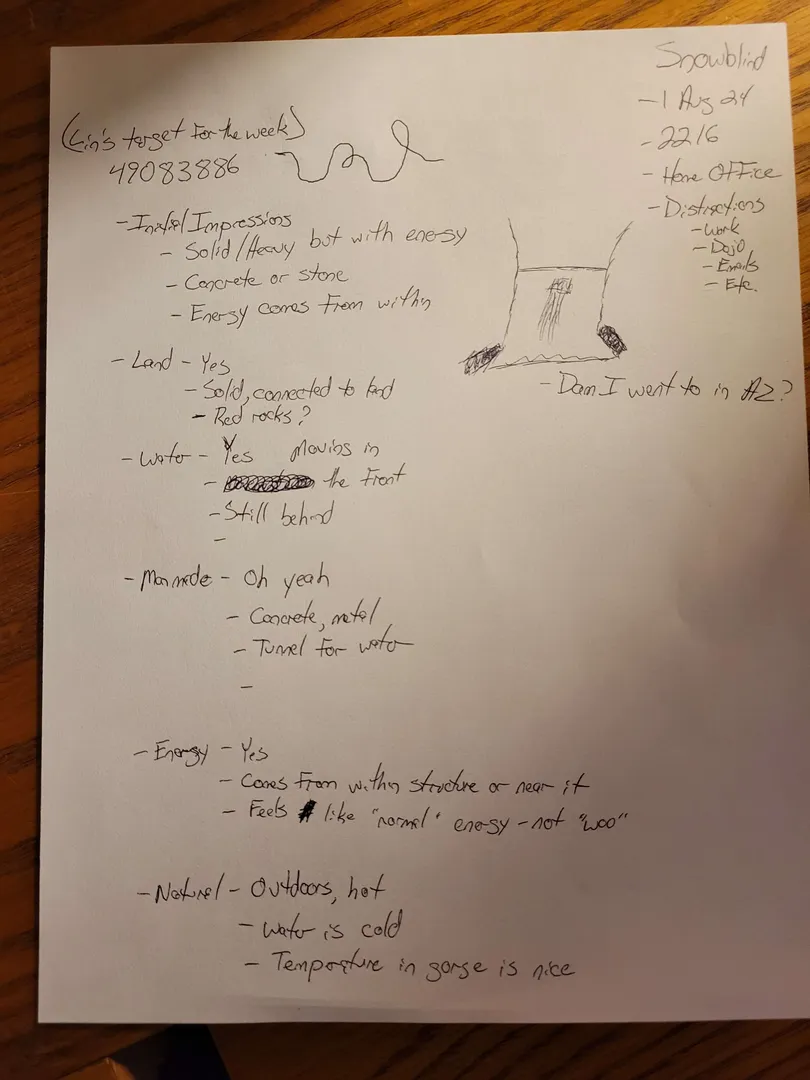 Snowblind
- 1 Aug 24
- 2216
- Home Office
- Distractions
- Work
- Dojo
- Emails
- Etc.
(Lin's target for the week)
49083886
- Initial Impressions
- Solid/Heavy but with energy
- Concrete or stone
- Energy comes from within
- Dam I went to in AZ?
- Land - Yes
- Solid, connected to land
- Red rocks?
- Water - Yes Moving in
- the front
- Still behind
-
- Manmade - Oh yeah
- Concrete, metal
- Tunnel for water
-
- Energy - Yes
- Comes from within structure or near it
- Feels like "normal" energy - not "woo"
- Natural - Outdoors, hot
- Water is cold
- Temperature in gorge is nice